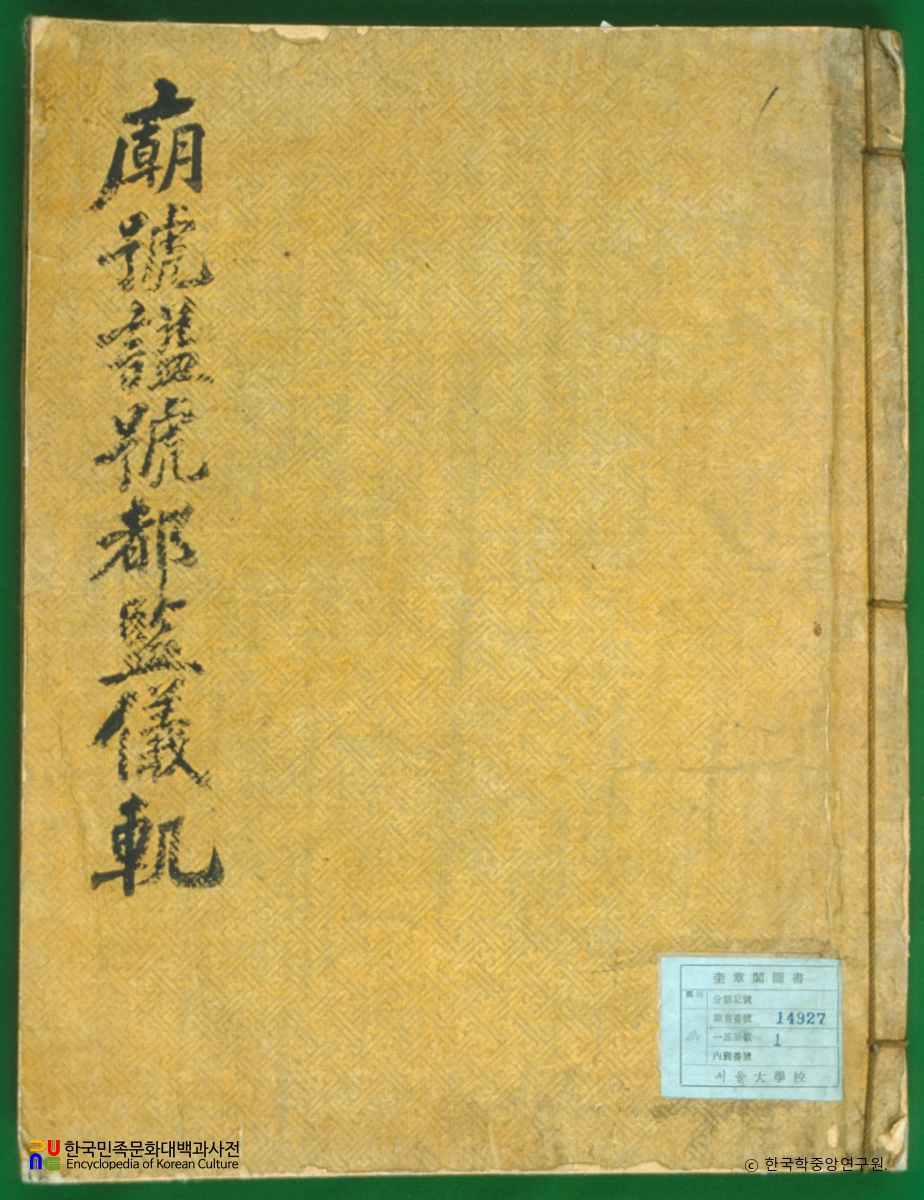 廟號諡號都監儀軌
奎章閣圖書
部
分類記號
圖書番號 14927
一部冊數 1
內國番號
서울大學校
한국민족문화대백과사전
Encyclopedia of Korean Culture
ⓒ 한국학중앙연구원